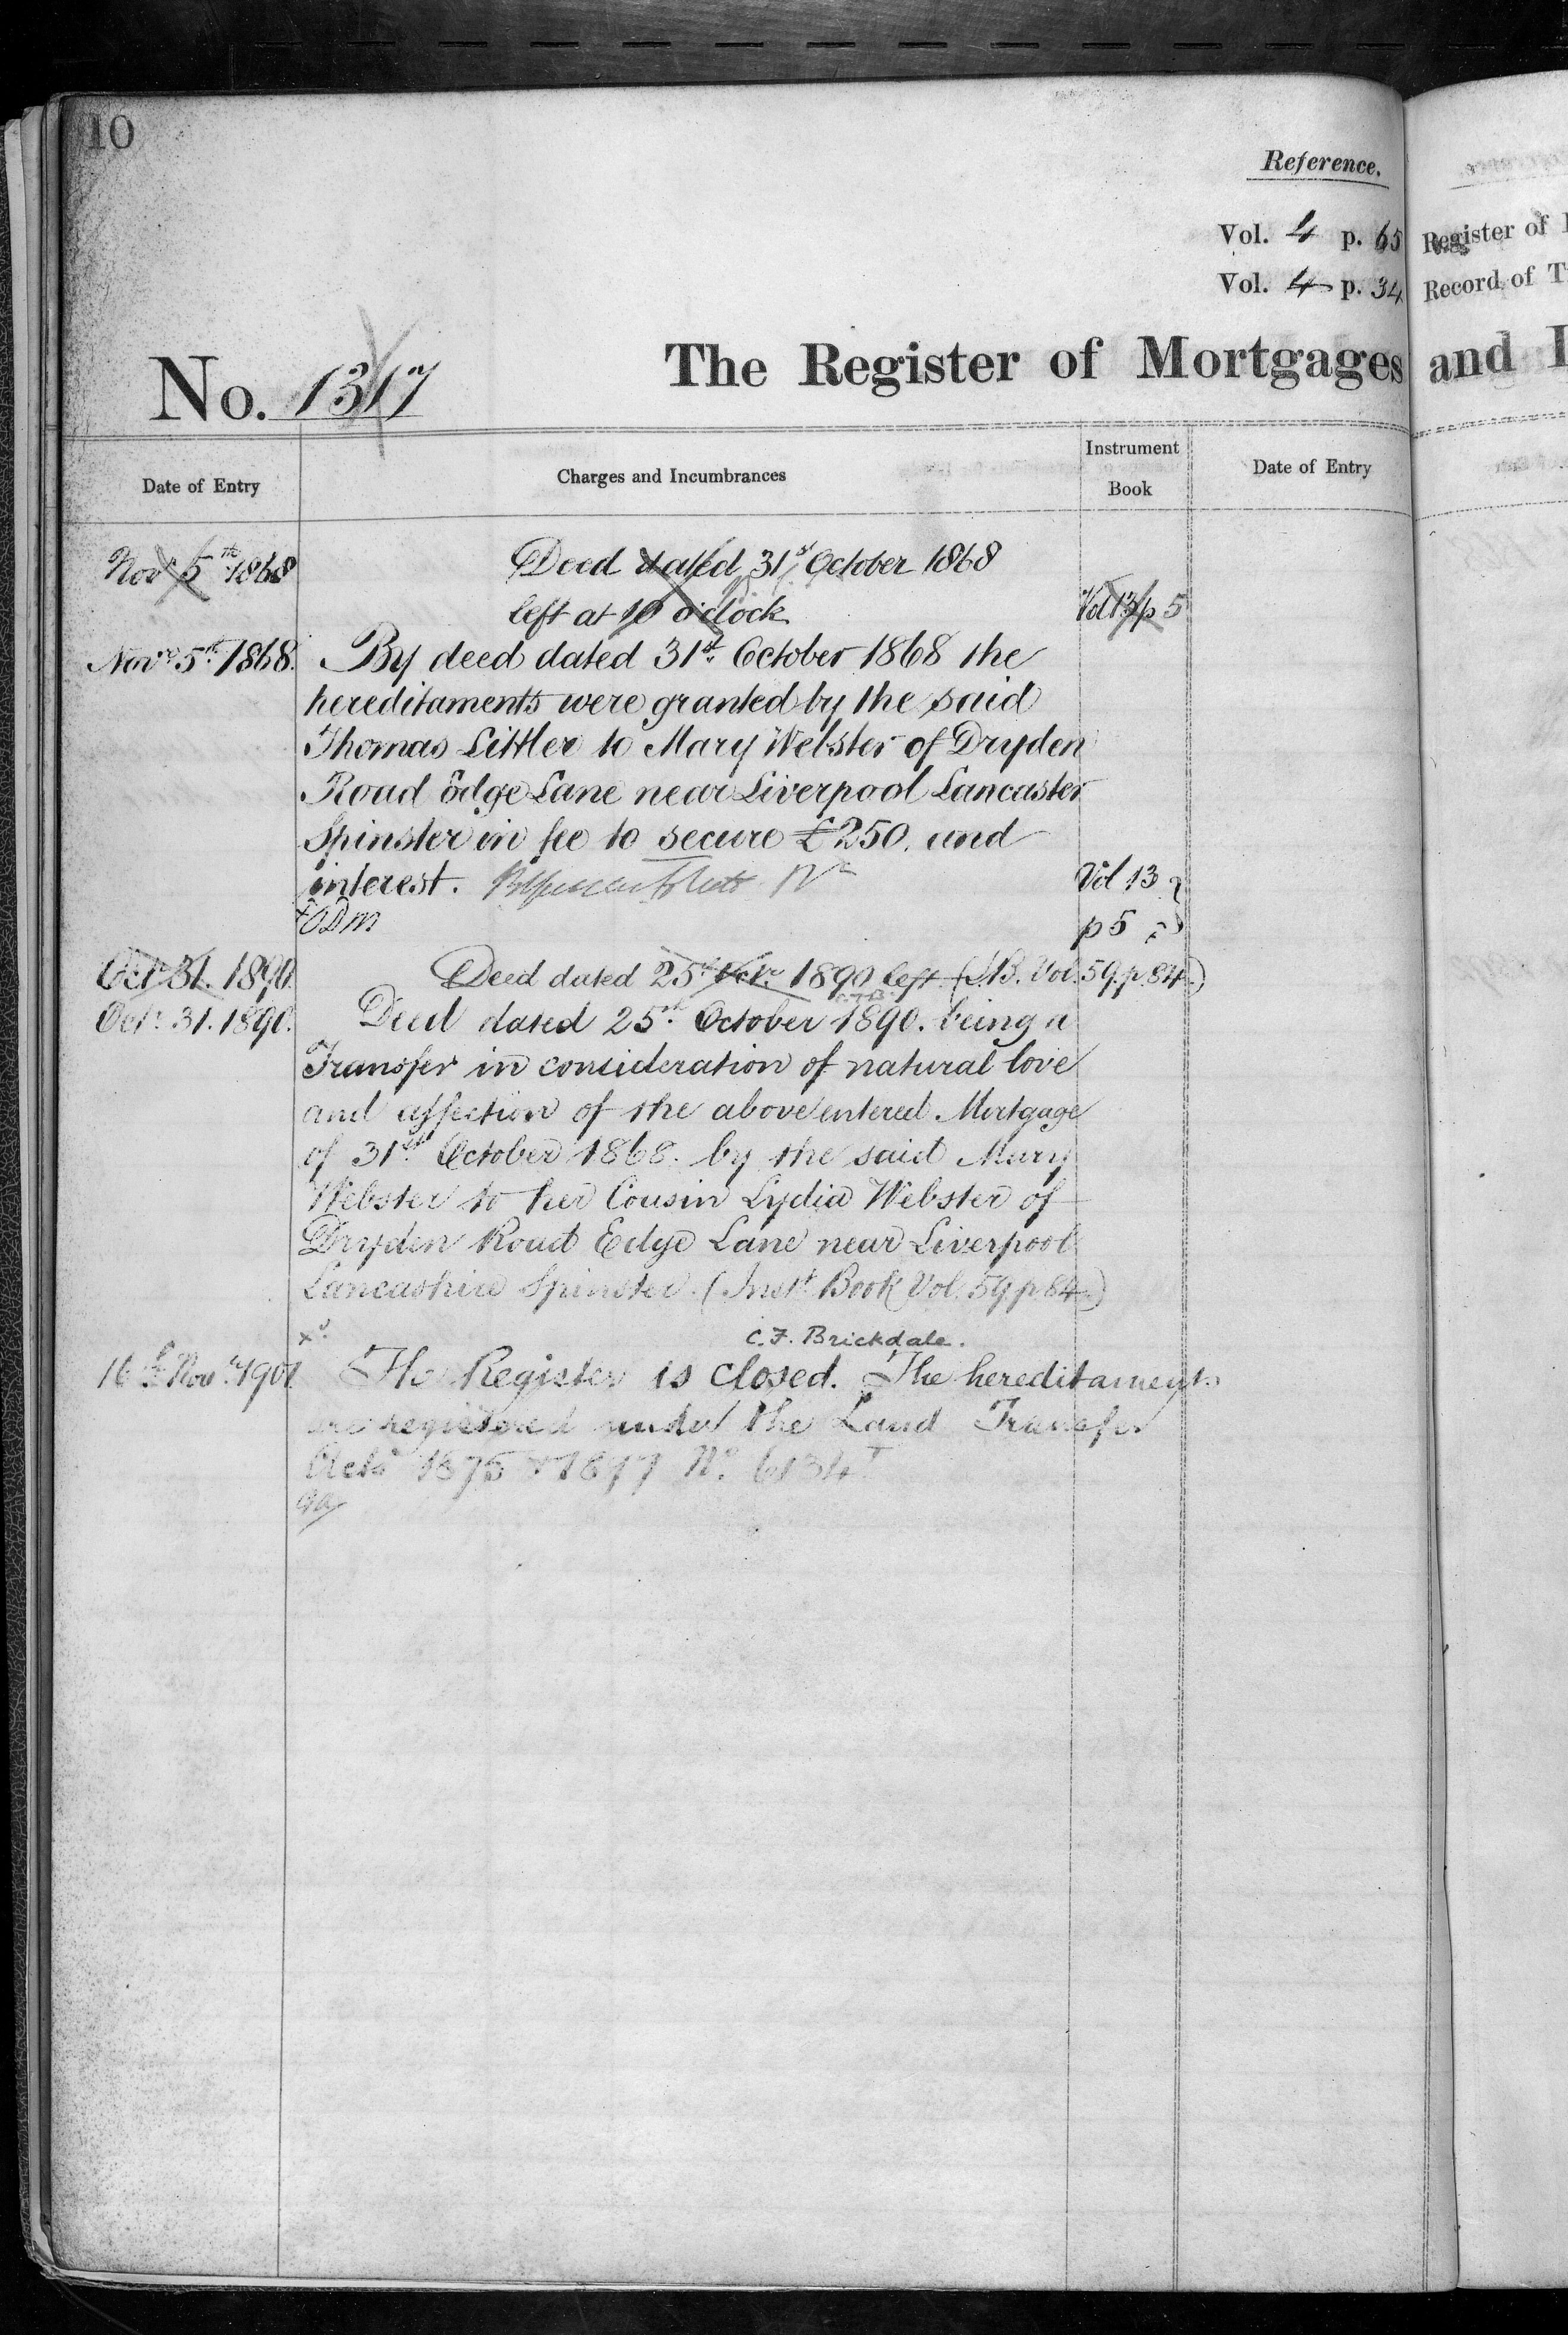 10
Reference.
Vol. 4 p. 65 Register of
Vol. 4 p. 34 Record of T
No. 1317 The Register of Mortgages and I
Date of Entry Charges and Incumbrances Instrument Book Date of Entry
Novr 5th 1868 Deed dated 31st October 1868
left at 10 o'clock Vol 13 p 5
Novr 5th 1868. By deed dated 31st October 1868 the
hereditaments were granted by the said
Thomas Littler to Mary Webster of Dryden
Road Edge Lane near Liverpool Lancaster
Spinster in fee to secure £250. and
interest. Vol 13
p 5
Octr 31. 1890. Deed dated 25th Octr 1890 left (I.B. Vol. 59. p. 84.)
Octr. 31. 1890. Deed dated 25th October 1890. being a
Transfer in consideration of natural love
and affection of the above entered Mortgage
of 31st October 1868. by the said Mary
Webster to her Cousin Lydia Webster of
Dryden Road Edge Lane near Liverpool
Lancashire Spinster. (Inst. Book Vol. 59 p 84.)
C. F. Brickdale.
16th Novr. 1901 The Register is closed. The hereditaments
are registered under the Land Transfer
Acts 1875 & 1897 No.